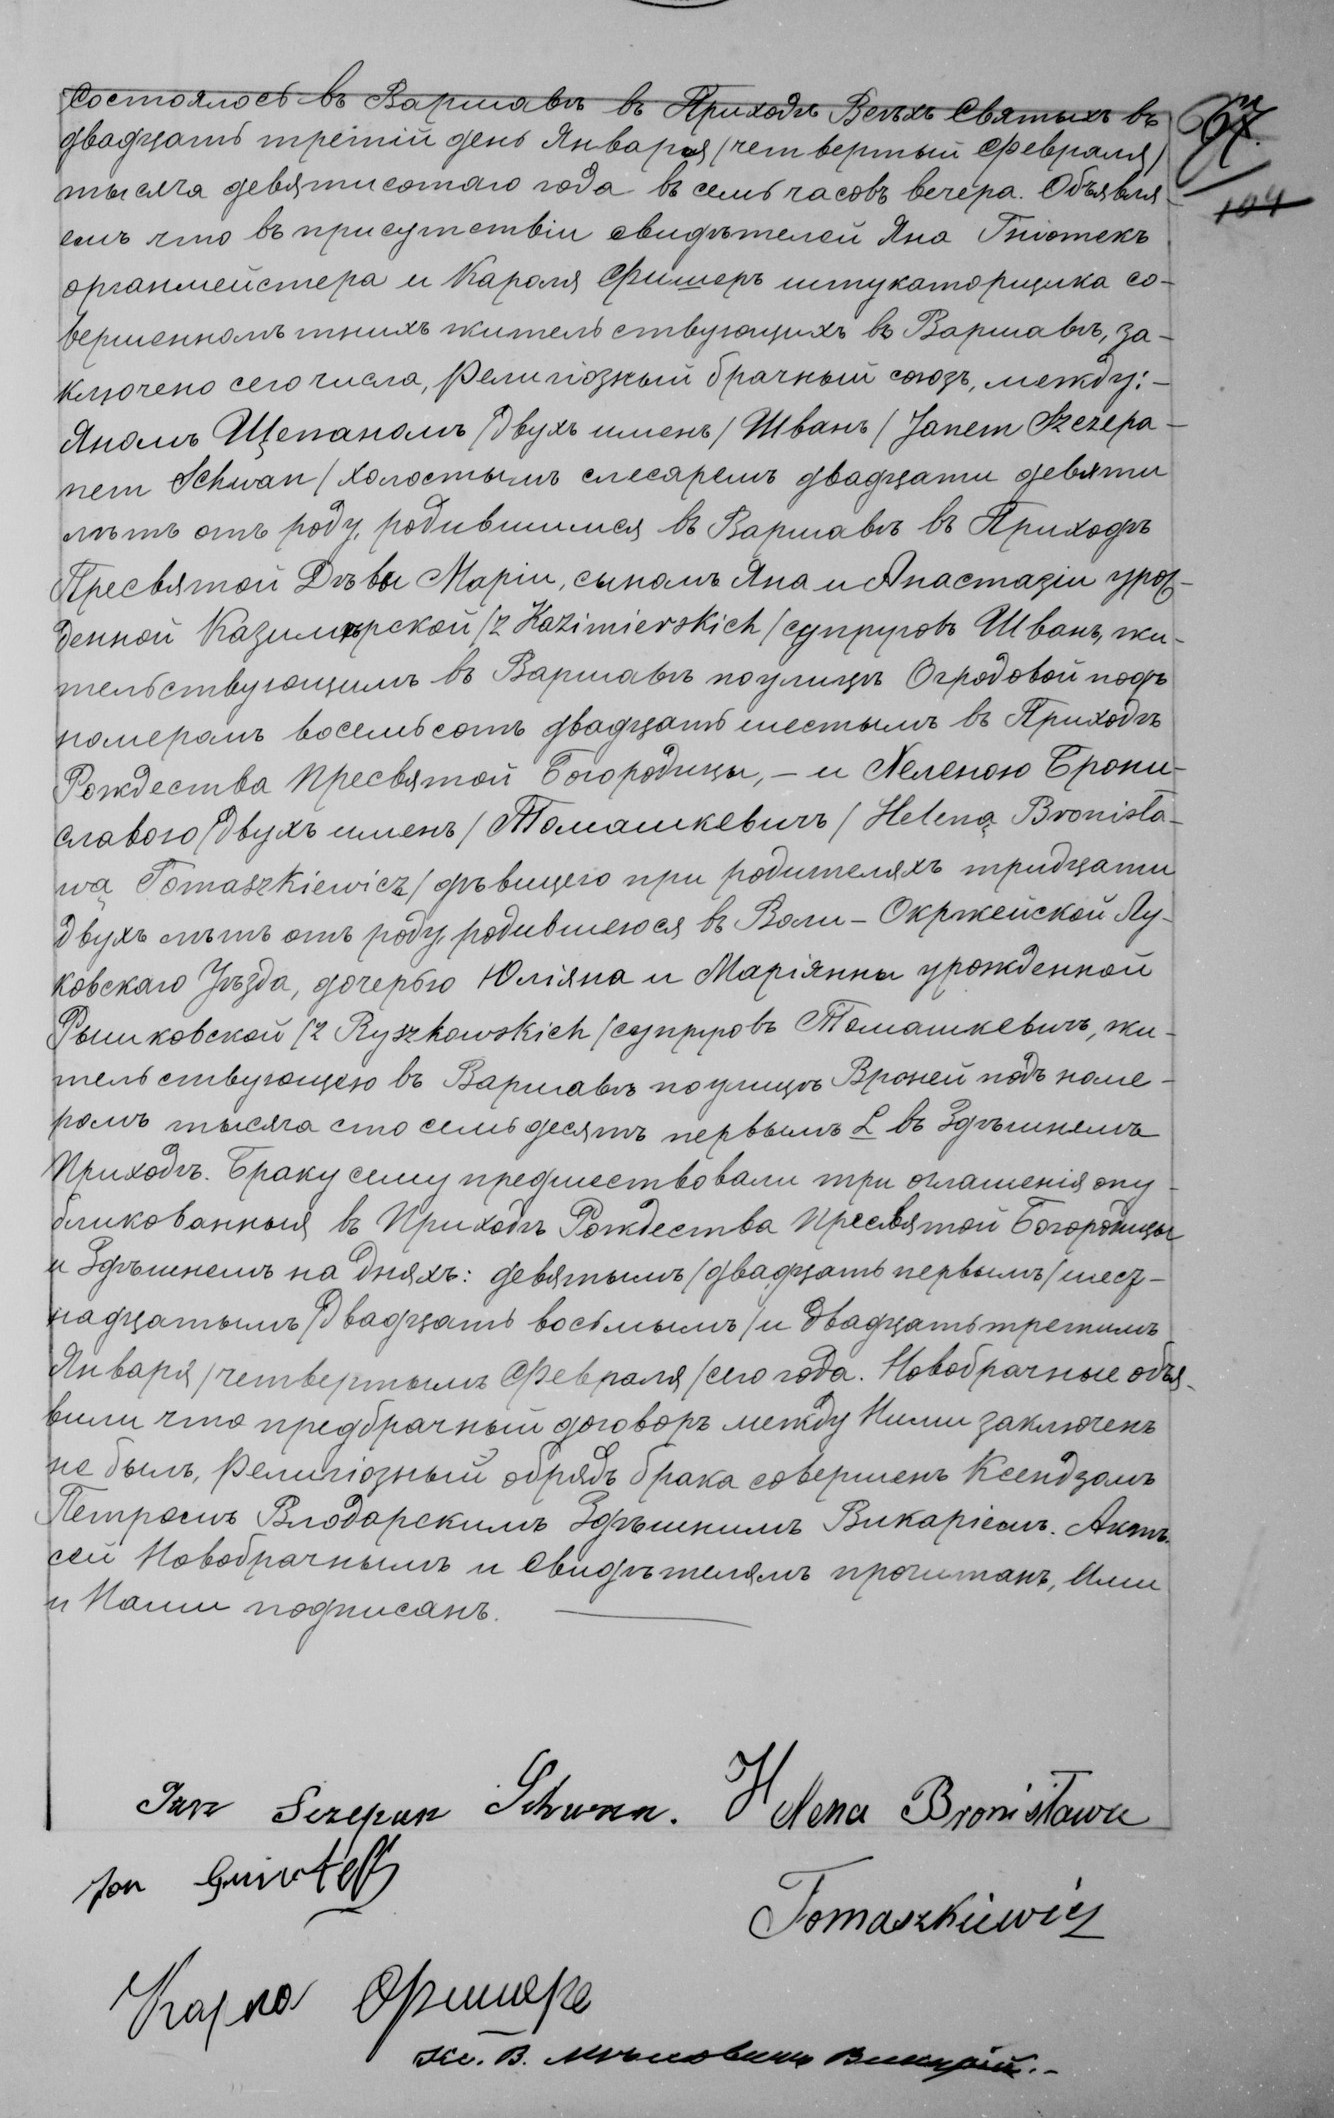 Состоялось въ Варшавѣ въ Приходѣ Всѣхъ Святыхъ въ
двадцать третій день Января /четвертый Февраля/
67.
104
тысяча девятисотаго года въ семь часовъ вечера. Объявля-
емъ что въ присутствіи свидѣтелей Яна Гніотекъ
органмейстера и Кароля Фишеръ штукаторщика со-
вершеннолѣтнихъ жительствующихъ въ Варшавѣ, за-
ключено сего числа, религіозный брачный союзъ, между: -
Яномъ Щепаномъ /двухъ именъ/ Шванъ /Janem Szczepa-
nem Schwan/ холостымъ слесаремъ двадцати девяти
лѣтъ отъ роду, родившимся въ Варшавѣ въ Приходѣ
Пресвятой Дѣвы Маріи, сыномъ Яна и Анастазіи урож-
денной Казимѣрской /z Kazimierskich/ супруговъ Шванъ, жи-
тельствующимъ въ Варшавѣ по улицѣ Огродовой подъ
номеромъ восемьсотъ двадцать шестымъ въ Приходѣ
Рождества Пресвятой Богородицы, - и Хеленою Брони-
славою /двухъ именъ/ Томашкевичъ /Heleną Bronisła-
wą Tomaszkiewicz/ дѣвицею при родителяхъ тридцати
двухъ лѣтъ отъ роду, родившеюся въ Воли-Окржейской Лу-
ковскаго Уѣзда, дочерью Юліяна и Маріянны урожденной
Рышковской /z Ryszkowskich/ супруговъ Томашкевичъ, жи-
тельствующею въ Варшавѣ по улицѣ Вроней подъ номе-
ромъ тысяча сто семьдесятъ первымъ L въ Здѣшнемъ
Приходѣ. Браку сему предшествовали три оглашенія опу-
бликованныя въ Приходѣ Рождества Пресвятой Богородицы
и Здѣшнемъ на дняхъ: девятымъ /двадцать первымъ/ шест-
надцатымъ /двадцать восьмымъ/ и двадцать третимъ
Января /четвертымъ Февраля/ сего года. Новобрачные объя-
вили что предбрачный договоръ между Ними заключенъ
не былъ, религіозный обрядъ брака совершенъ Ксендзомъ
Петромъ Влодарскимъ Здѣшнимъ Викаріемъ. Актъ
сей Новобрачнымъ и Свидѣтелямъ прочитанъ, Ими
и Нами подписанъ.
Jan Szczepan Schwan. Helena Bronisława
Jan Gniotek
Tomaszkiewicz
Карло Фишеръ
Кс. В. Викарій.-